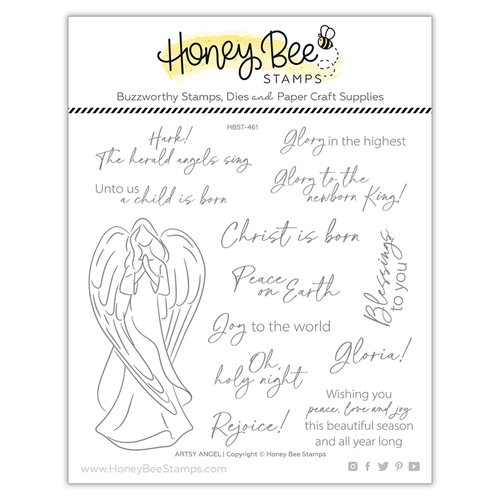 Honey Bee
STAMPS
Buzzworthy Stamps, Dies and Paper Craft Supplies
HBST-461
Hark!
The herald angels sing
Glory in the highest
Unto us
a child is born
Glory to the
newborn King!
Christ is born
Blessings
to you
Peace
on Earth
Joy to the world
Oh,
holy night
Gloria!
Rejoice!
Wishing you
peace, love and joy
this beautiful season
and all year long
ARTSY ANGEL | Copyright © Honey Bee Stamps
www.HoneyBeeStamps.com